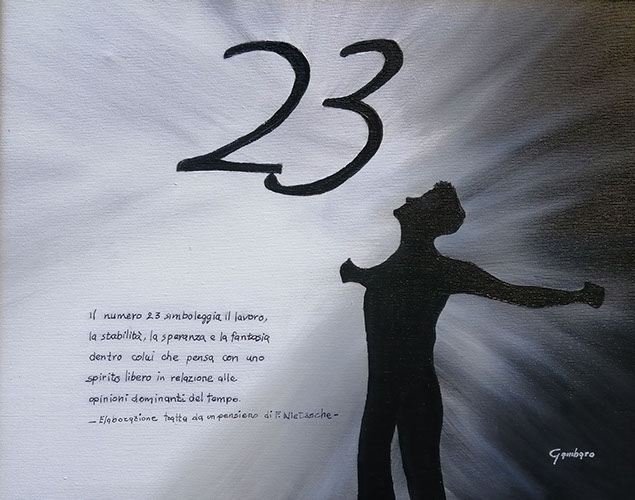 23
Il numero 23 simboleggia il lavoro,
la stabilità, la speranza e la fantasia
dentro colui che pensa con uno
spirito libero in relazione alle
opinioni dominanti del tempo.
- Elaborazione tratta da un pensiero di F. Nietzsche -
Gambaro